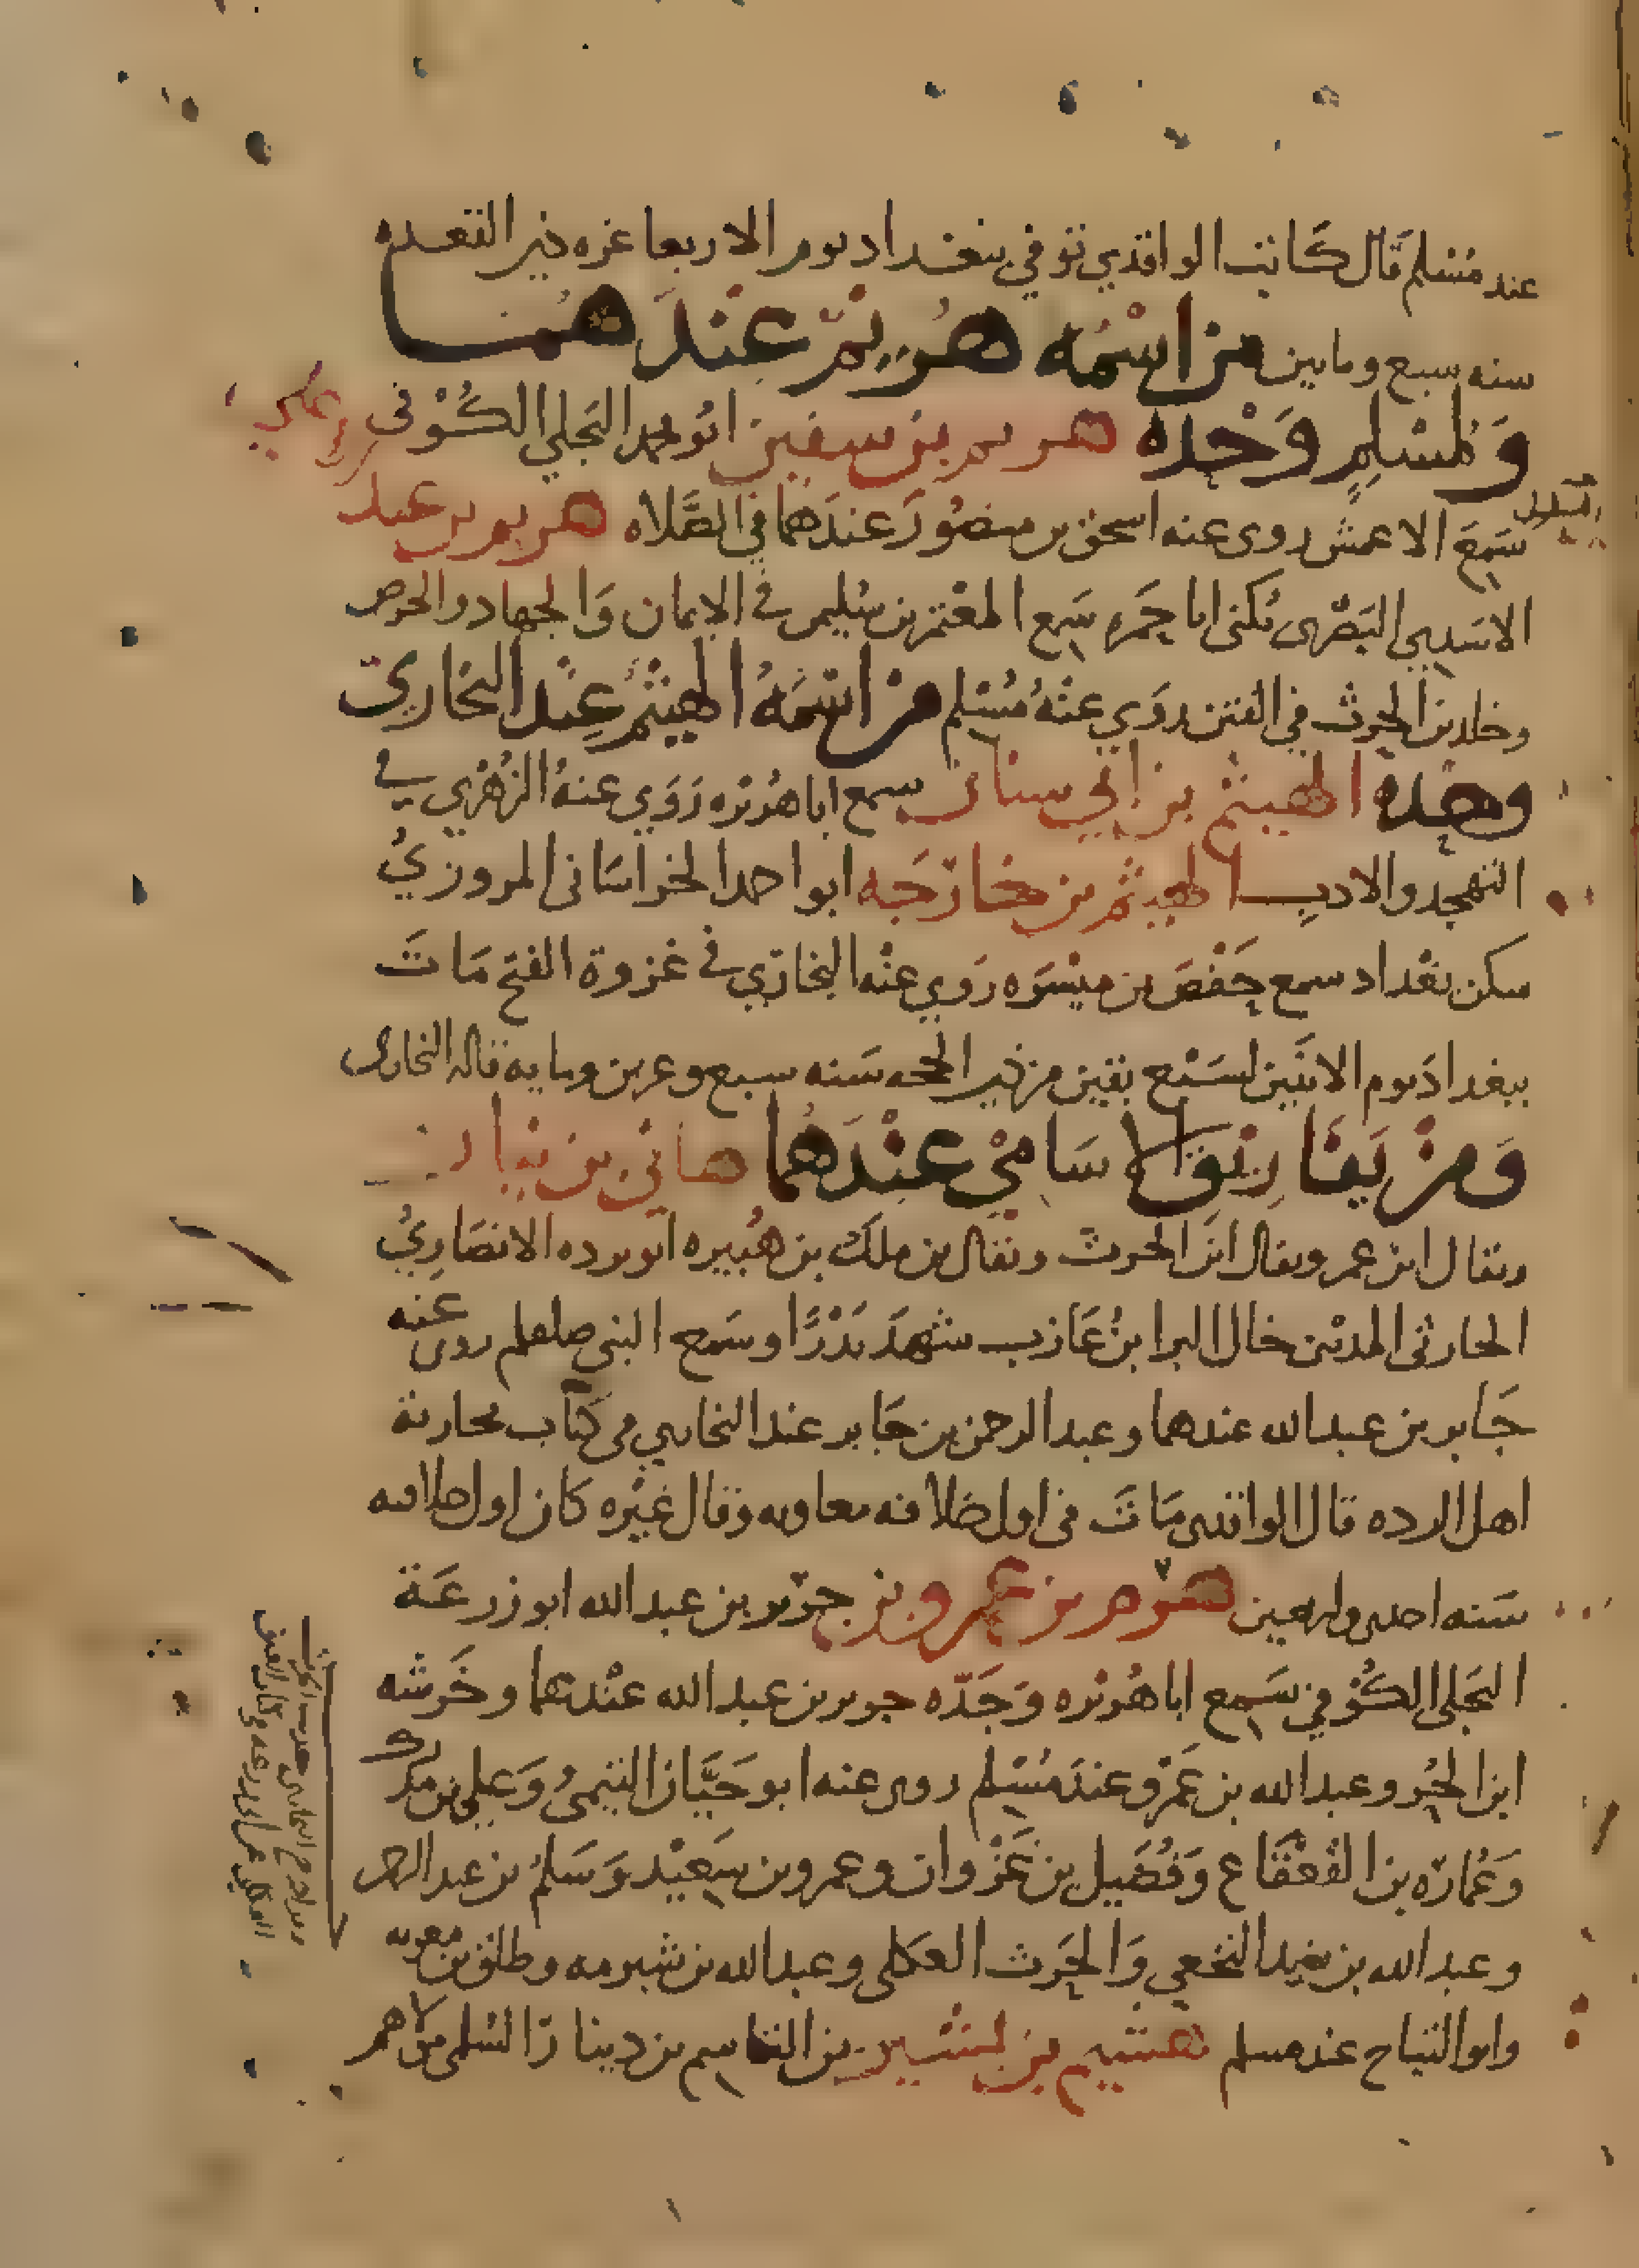 عند مسلم قال كاتب الواقدي توفي ببغداد يوم الاربعا غره ذي القعده
سنه سبع ومايين من اسمه هريم عندهما
ولمسلم وحده هريم بن سفين ابو محمد البجلي الكوفي
سمع الاعمش روى عنه اسحق بن منصور عندهما في الصلاه هريم بن عبد
الاسدي البصرى يكنى ابا حمزه سمع المعتمر بن سليمن في الايمان والجهاد والحوض
وخلد بن الحرث في الفتن روي عنه مسلم من اسمه الهيثم عند البخاري
وحده الهيثم بن ابي سنان سمع ابا هريره روي عنه الزهري في
التهجد والادب الهيثم بن خارجه ابو احمد الخراساني المروزي
سكن بغداد سمع حفص بن ميسره روي عنه البخاري في غزوة الفتح مات
ببغداد يوم الاثنين لسبع بقين من ذي الحجه سنه سبع وعشرين ومايه قاله البخاري
ومن تفاريق الاسامي عندهما هاني بن نيار
ويقال ابن عمر ويقال ابن الحرث ويقال بن ملك بن هبيره ابو برده الانصاري
الحارثي المدني خال البرا بن عازب شهد بدرا وسمع النبي صلعم روى عنه
جابر بن عبد الله عندهما وعبد الرحمن بن جابر عند البخاري في كتاب محاربة
اهل الرده قال الواقدي مات في اول خلافه معاويه وقال غيره كان اول خلافته
سنه احدى واربعين هرم بن عمرو بن جرير بن عبد الله ابو زرعة
البجلي الكوفي سمع ابا هريره وجده جرير بن عبد الله عندهما وخرشه
ابن الحر وعبد الله بن عمرو عند مسلم روى عنه ابو حيان التيمي وعلي بن مدرك
وعماره بن القعقاع وفضيل بن غزوان وعمرو بن سعيد وسلم بن عبد الرحمن
وعبد الله بن يزيد النخعي والحرث العكلي وعبد الله بن شبرمه وطلق بن معويه
وابو التياح عند مسلم هشيم بن بشير بن القاسم بن دينار السلمي مولاهم